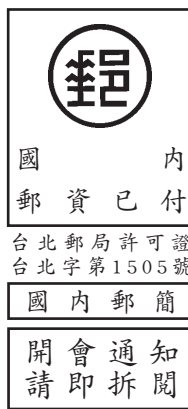 郵
國內
郵資已付
台北郵局許可證
台北字第1505號
國內郵簡
開會通知
請即拆閱